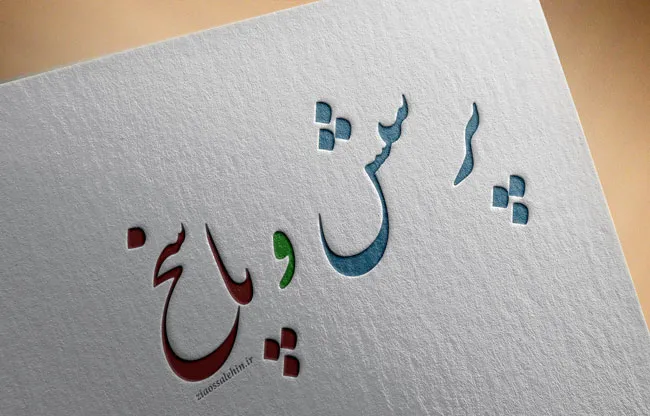 پرسش و پاسخ
ziaossalehin.ir